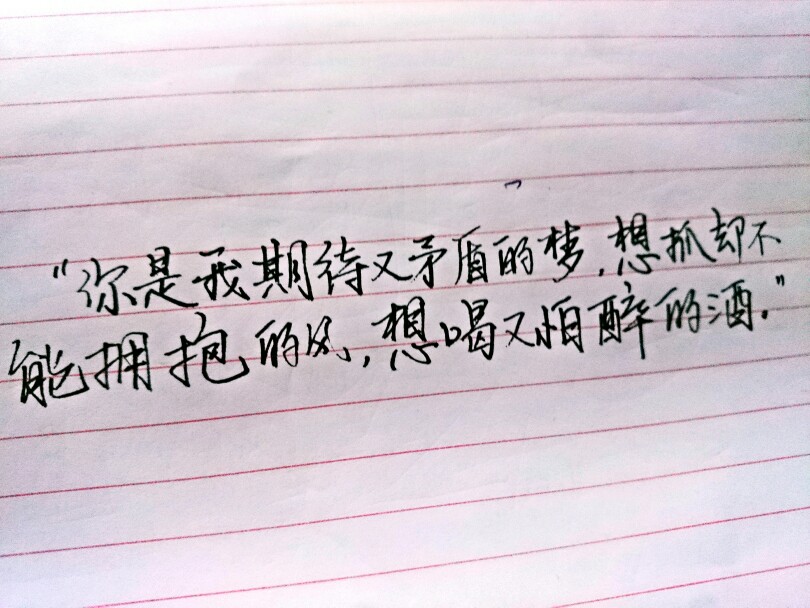 “你是我期待又矛盾的梦,想抓却不
能拥抱的风,想喝又怕醉的酒.”